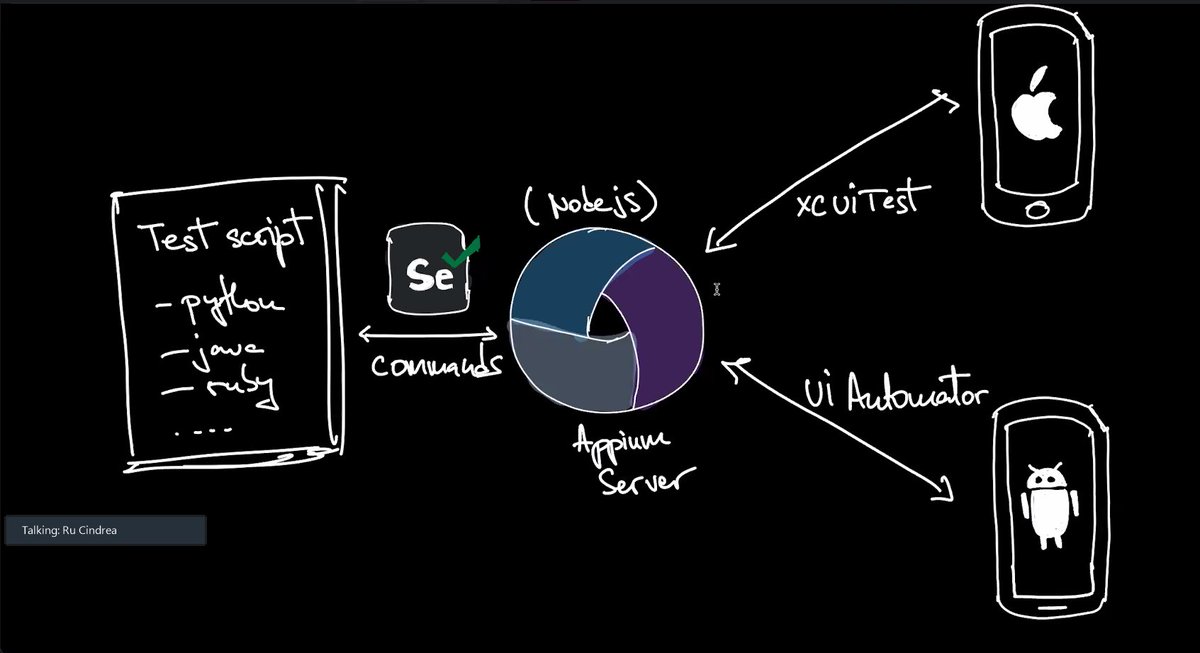 Test script
- python
- java
- ruby
. ....
Se
commands
(Nodejs)
Appium
Server
xcuiTest
ui Automator
Talking: Ru Cindrea